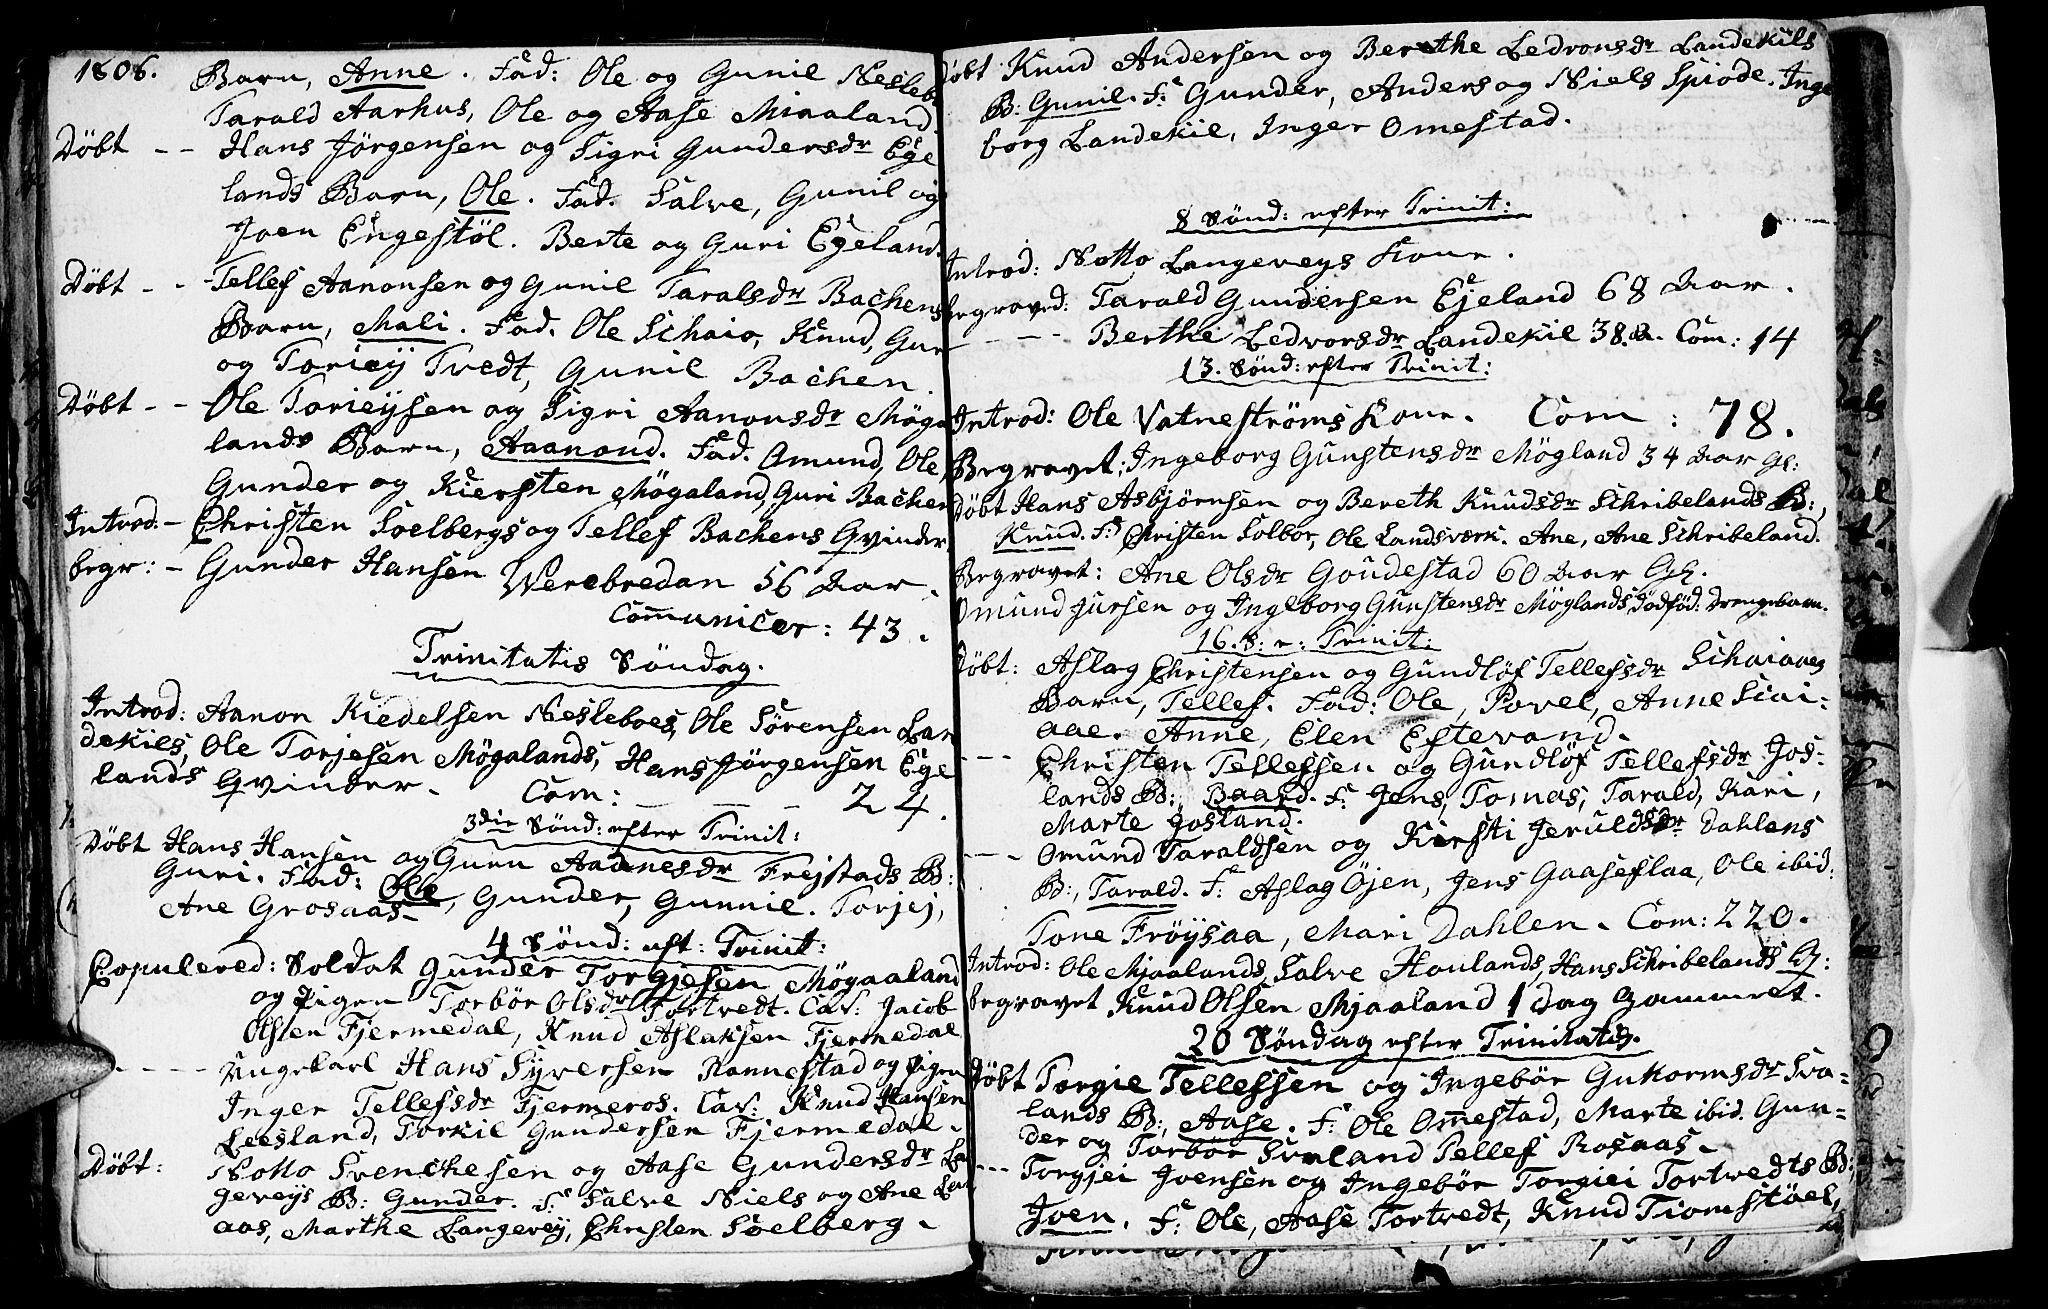 1806. Barn, Anne. Fad: Ole og Gunil Nesleb
Tarald Aarhus, Ole og Aase Miaaland.
Döbt - - Hans Jörgensen og Sigri Gundersdr Ege
lands Barn, Ole. Fad. Salve, Gunil og
Joen Engestöl. Berte og Guri Egeland.
Döbt - - Tellef Aanonsen og Gunil Taralsdr Bachens
Barn, Mali. Fad. Ole Schaio, Knud, Gur
og Toriey Tvedt, Gunil Bachen.
Döbt - - Ole Torieysen og Sigri Aanonsdr Möga
lands Barn, Aaanond. Fad. Omund, Ole,
Gunder og Kiersten Mögaland, Guri Bachen
Introd: - Christen Soelbergs og Tellef Bachens Qvinder.
begr: - Gunder Hansen Werebredan 56 Aar.
Communicer: 43.
Trinitatis Söndag.
Introd: Aanon Kiedelsen Nesleboes, Ole Sörensen Lan
dekils, Ole Torjesen Mögalands, Hans Jörgensen Ege
lands Qvinder. Com: - - - 24.
3die Sönd: efter Trinit:
Döbt Hans Hansen og Guru Aadnesdr Frejstads B:
Guri. Fad: Ole, Gunder, Gunnil. Torjej,
Ane Grosaas.
4 Sönd: eft: Trinit:
Copulered: Soldat Gunder Torgjesen Mögaaland
og Pigen Torbör Olsdr Tortvedt. Cav: Jacob
Olsen Fjermedal, Knud Aslaksen Fjermedal
- - - - Ungekarl Hans Syversen Rannestad og Pigen
Inger Tellefsdr Fjermeros. Cav: Knud Hansen
Leesland, Torkil Gundersen Fjermedal.
Döbt: Notto Svenchesen og Aase Gundersdr Lan
geveys B: Gunder. F: Salve Niels og Ane
aas, Marthe Langevej, Christen Soelberg.
Döbt Knud Andersen og Berethe Ledvonsdr Landekils
B: Gunil. F: Gunder, Anders og Niels Spiode. Inge
borg Landekil, Inger Omestad.
8 Sönd: efter Trinit:
Introd: Notto Langeveys Kone.
begraved: Tarald Gundersen Ejeland 68 Aar.
- - - Berthe Ledvorsdr Landekil 38. A. Com: 14
13. Sönd: efter Trinit:
Introd: Ole Vatneströms Kone. Com: 78.
Begravet: Ingeborg Gunstensdr Mögland 34 Aar Gl:
Döbt Hans Asbjörnsen og Bereth Knudsdr Schribelands B:,
Knud. F: Christen Solbor, Ole Landsværk. Ane, Ane Schribeland.
Begravet: Ane Olsdr Goudestad 60 Aar Gl.
Omund Jursen og Ingeborg Gunstensdr Möglands, Dödföd: Drengebarn.
16. S: e: Trinit:
Döbt: Aslag Christensen og Gundlöf Tellefsdr Schaiaaes
Barn, Tellef. Fad: Ole, Povel, Anne Scai-
aae. Anne, Elen Estevand.
- - - Christen Tellefsen og Gundlöf Tellefsdr Jos-
lands B:, Baard. F: Jens, Tomas, Tarald, Kari,
Marte Josland.
- - - Omund Taraldsen og Kirsti Jeruldsdr Dahlens
B:, Tarald. F: Aslag Öjen, Jens Gaaseflaa, Ole ibid:
Tone Fröysaa, Mari Dahlen. Com: 220.
Introd: Ole Mjaalands, Salve Houlands, Hans Schribelands Q:
begravet Knud Olsen Mjaaland 1 dag Gammel.
20 Söndag efter Trinitatis.
Döbt Torgie Tellefsen og Ingebör Gukormsdr Sva-
lands B:, Aase. F: Ole Omestad, Marte ibid. Gun-
der og Torbör Svaland Tellef Rosaas.
- - - Torgjei Joensen og Ingebör Torgiei Tortvedts B:,
Joen. F: Ole, Aase Tortvedt, Knud Tiomstöel,